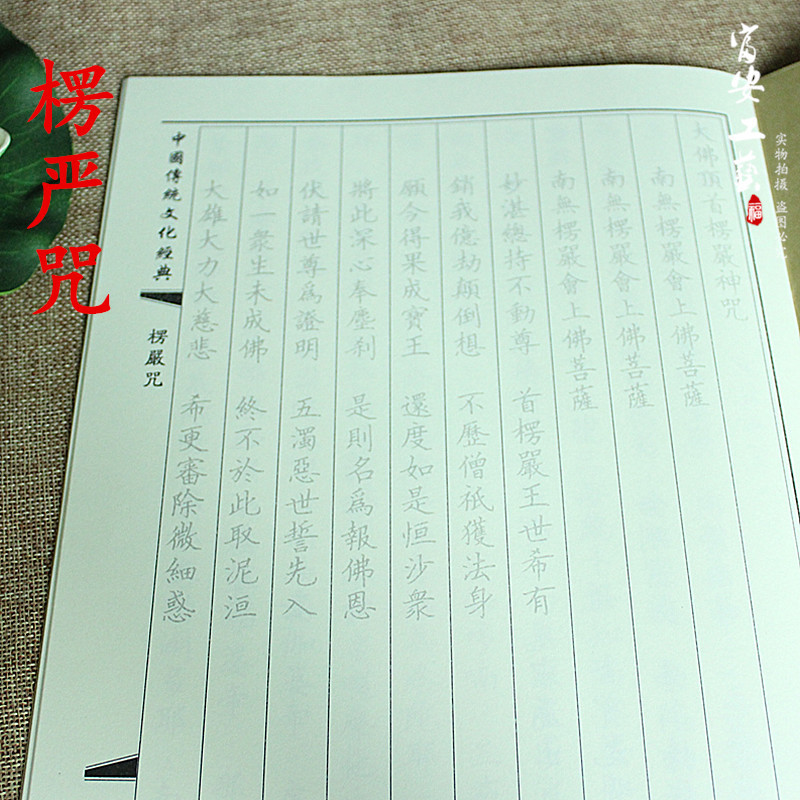 楞严咒
富安工艺
福
实物拍摄 盗图必
大佛頂首楞嚴神咒
南無楞嚴會上佛菩薩
南無楞嚴會上佛菩薩
南無楞嚴會上佛菩薩
妙湛總持不動尊 首楞嚴王世希有
銷我億劫顛倒想 不歷僧祇獲法身
願今得果成寶王 還度如是恒沙衆
將此深心奉塵剎 是則名爲報佛恩
伏請世尊爲證明 五濁惡世誓先入
如一衆生未成佛 終不於此取泥洹
大雄大力大慈悲 希更審除微細惑
中國傳統文化經典
楞嚴咒